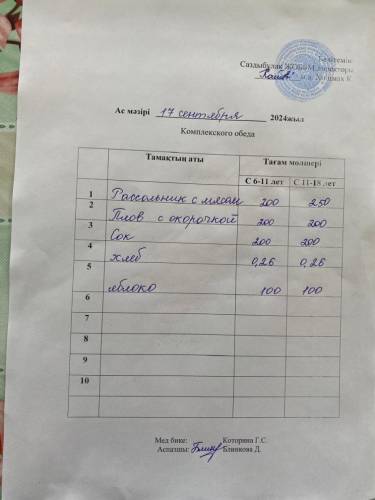 Бекітемін:
Саздыбулақ ЖОББМ директоры
Ас мәзірі 17 сентября 2024жыл
Комплекского обеда
Тамақтың аты Тағам мөлшері
С 6-11 лет С 11-18 лет
1 Рассольник с мясом 200 250
2 Плов с окорочкой 200 200
3 Сок 200 200
4 хлеб 0,26 0,26
5 яблоко 100 100
6
7
8
9
10
Мед бике: Которина Г.С.
Аспазшы: Блинкова Д.